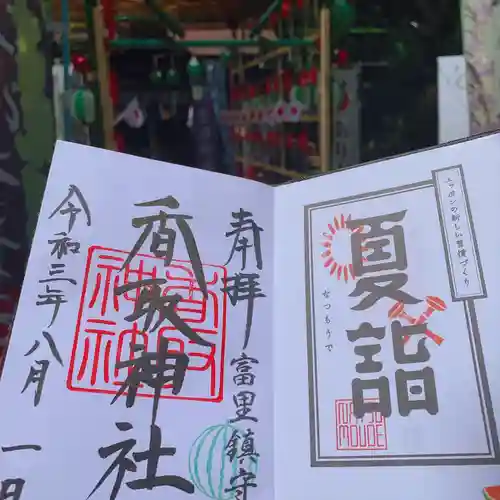 夏詣
なつもうで
ニッポンの新しい習慣づくり
NATSU
MOUDE
奉拝
富里鎮守
香取神社
香取
神社
令和三年八月一日